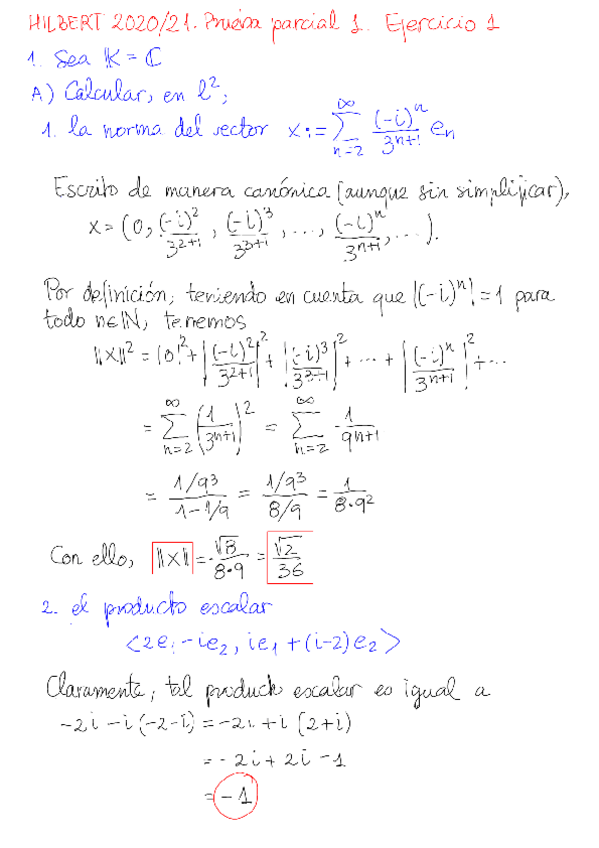 HILBERT 2020/21. Prueba parcial 1. Ejercicio 1
1. Sea 𝕂 = ℂ
A) Calcular, en l²;
1. la norma del vector x := ∑_{n=2}^{∞} (-i)^n / 3^{n+1} e_n
Escrito de manera canónica (aunque sin simplificar),
x = (0, (-i)²/3^{2+1}, (-i)³/3^{3+1}, ..., (-i)^n/3^{n+1}, ...).
Por definición, teniendo en cuenta que |(-i)^n| = 1 para
todo n∈ℕ, tenemos
||x||² = |0|² + |(-i)²/3^{2+1}|² + |(-i)³/3^{3+1}|² + ... + |(-i)^n/3^{n+1}|² + ...
= ∑_{n=2}^{∞} (1/3^{n+1})² = ∑_{n=2}^{∞} 1/9^{n+1}
= (1/9³)/(1-1/9) = (1/9³)/(8/9) = 1/(8·9²)
Con ello, ||x|| = √8/(8·9) = √2/36
2. el producto escalar
<2e₁ - ie₂, ie₁ + (i-2)e₂>
Claramente, tal producto escalar es igual a
-2i - i(-2-i) = -2i + i(2+i)
= -2i + 2i - 1
= -1